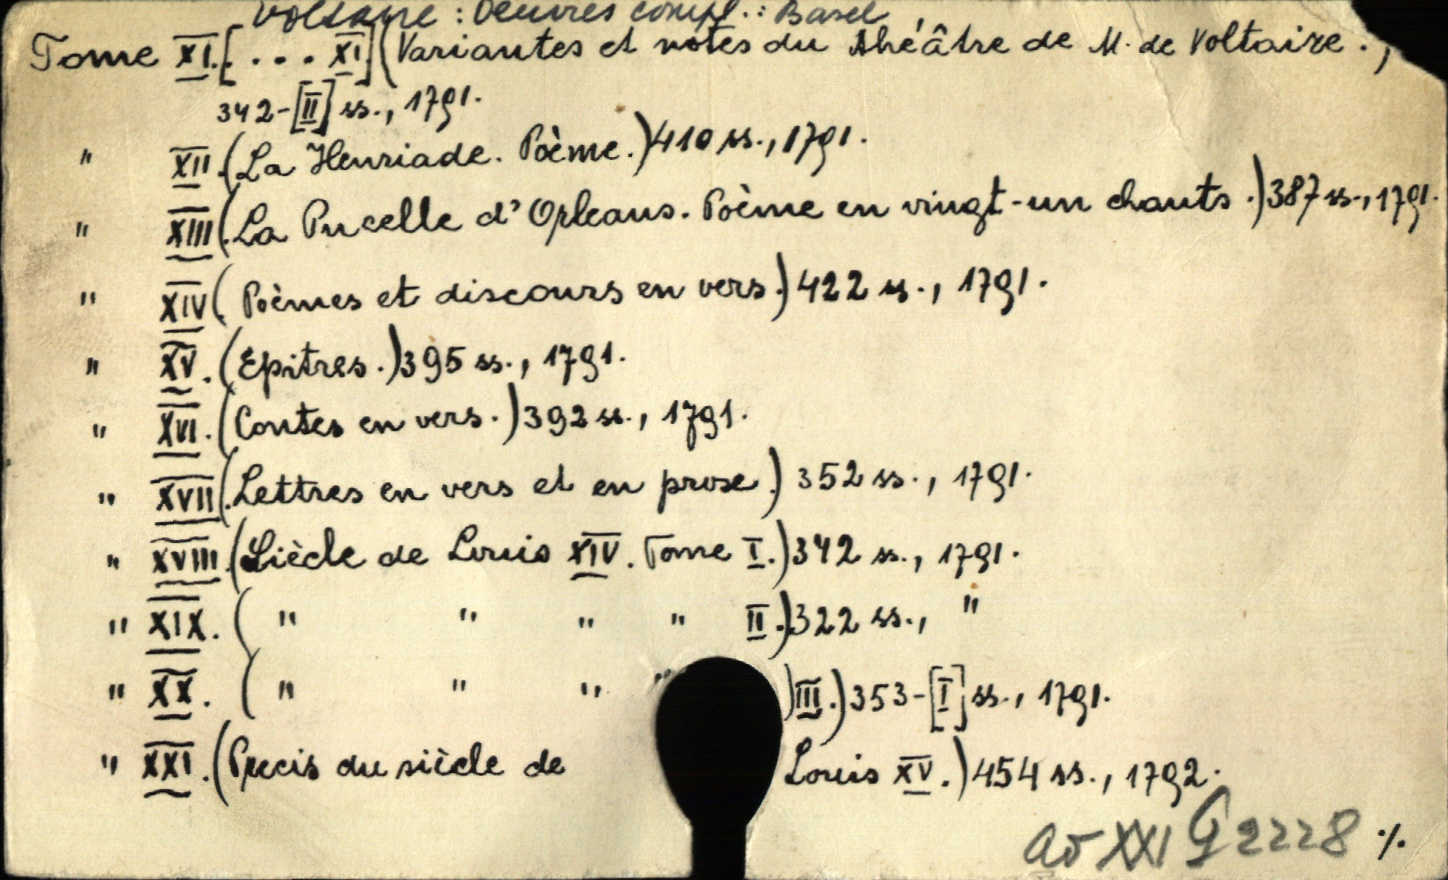 Voltaire : Oeuvres compl. : Basel
Tome XI. [... XI] (Variantes et notes du théâtre de M. de Voltaire. ,
342-[II] ss., 1791.
" XII. (La Henriade. Poème.) 410 ss., 1791.
" XIII. (La Pucelle d'Orleans. Poème en vingt-un chants.) 387 ss., 1791.
" XIV. (Poèmes et discours en vers.) 422 ss., 1791.
" XV. (Epitres.) 395 ss., 1791.
" XVI. (Contes en vers.) 392 ss., 1791.
" XVII. (Lettres en vers et en prose.) 352 ss., 1791.
" XVIII. (Siècle de Louis XIV. Tome I.) 342 ss., 1791.
" XIX. ( " " " " II.) 322 ss., "
" XX. ( " " " " ) III.) 353-[I] ss., 1791.
" XXI. (Precis du siècle de Louis XV.) 454 ss., 1792.
ad XXI G 2228 ·/.